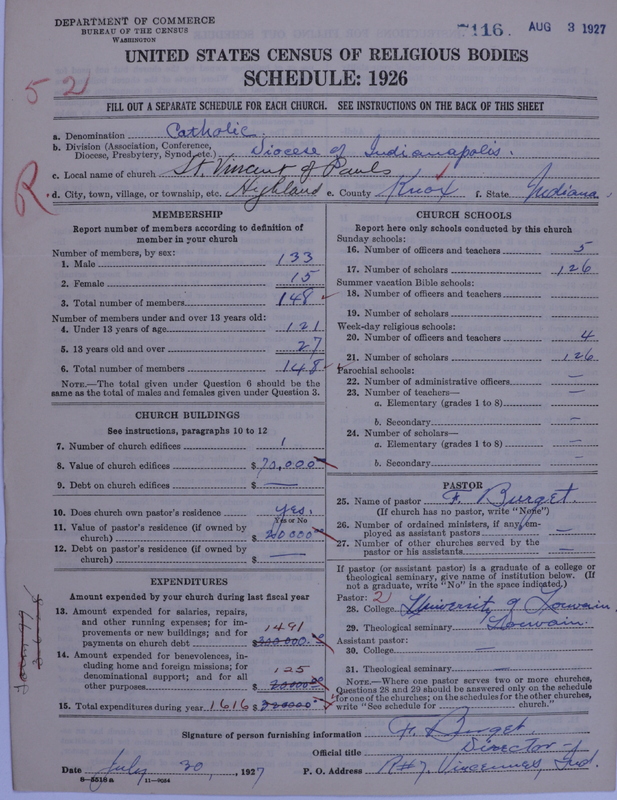 DEPARTMENT OF COMMERCE
BUREAU OF THE CENSUS
WASHINGTON
7116. AUG 3 1927
UNITED STATES CENSUS OF RELIGIOUS BODIES
SCHEDULE: 1926
52
FILL OUT A SEPARATE SCHEDULE FOR EACH CHURCH. SEE INSTRUCTIONS ON THE BACK OF THIS SHEET
R
a. Denomination Catholic.
b. Division (Association, Conference, Diocese, Presbytery, Synod, etc.) Diocese of Indianapolis.
c. Local name of church St. Vincent of Pauls
d. City, town, village, or township, etc. Highland e. County Knox f. State Indiana.
MEMBERSHIP
Report number of members according to definition of
member in your church
Number of members, by sex:
1. Male 133
2. Female 15
3. Total number of members 148
Number of members under and over 13 years old:
4. Under 13 years of age 121
5. 13 years old and over 27
6. Total number of members 148
NOTE.—The total given under Question 6 should be
same as the total of males and females given under Question 3.
CHURCH BUILDINGS
See instructions, paragraphs 10 to 12
7. Number of church edifices 1
8. Value of church edifices $70,000
9. Debt on church edifices $ —
10. Does church own pastor's residence Yes.
Yes or No
11. Value of pastor's residence (if owned by
church) $ 200000
12. Debt on pastor's residence (if owned by
church) $ —
EXPENDITURES
Amount expended by your church during last fiscal year
13. Amount expended for salaries, repairs,
and other running expenses; for im-
provements or new buildings; and for
payments on church debt 1491 $
14. Amount expended for benevolences, in-
cluding home and foreign missions; for
denominational support; and for all
other purposes 125 $
15. Total expenditures during year 1616 $
CHURCH SCHOOLS
Report here only schools conducted by this church
Sunday schools:
16. Number of officers and teachers 5
17. Number of scholars 126
Summer vacation Bible schools:
18. Number of officers and teachers
19. Number of scholars
Week-day religious schools:
20. Number of officers and teachers 4
21. Number of scholars 126
Parochial schools:
22. Number of administrative officers —
23. Number of teachers—
a. Elementary (grades 1 to 8) —
b. Secondary —
24. Number of scholars—
a. Elementary (grades 1 to 8) —
b. Secondary —
PASTOR
25. Name of pastor F. Burget.
(If church has no pastor, write "None")
26. Number of ordained ministers, if any, em-
ployed as assistant pastors —
27. Number of other churches served by the
pastor or his assistants —
If pastor (or assistant pastor) is a graduate of a college or
theological seminary, give name of institution below. (If
not a graduate, write "No" in the space indicated.)
Pastor: 2
28. College University of Louvain
29. Theological seminary Louvain.
Assistant pastor:
30. College —
31. Theological seminary —
NOTE.—Where one pastor serves two or more churches,
Questions 28 and 29 should be answered only on the schedule
for one of the churches; on the schedules for the other churches,
write "See schedule for church."
Signature of person furnishing information F. Burget.
Official title Director
Date July 30, 1927 P. O. Address R#7, Vincennes, Ind.
8—5518a 11—9064